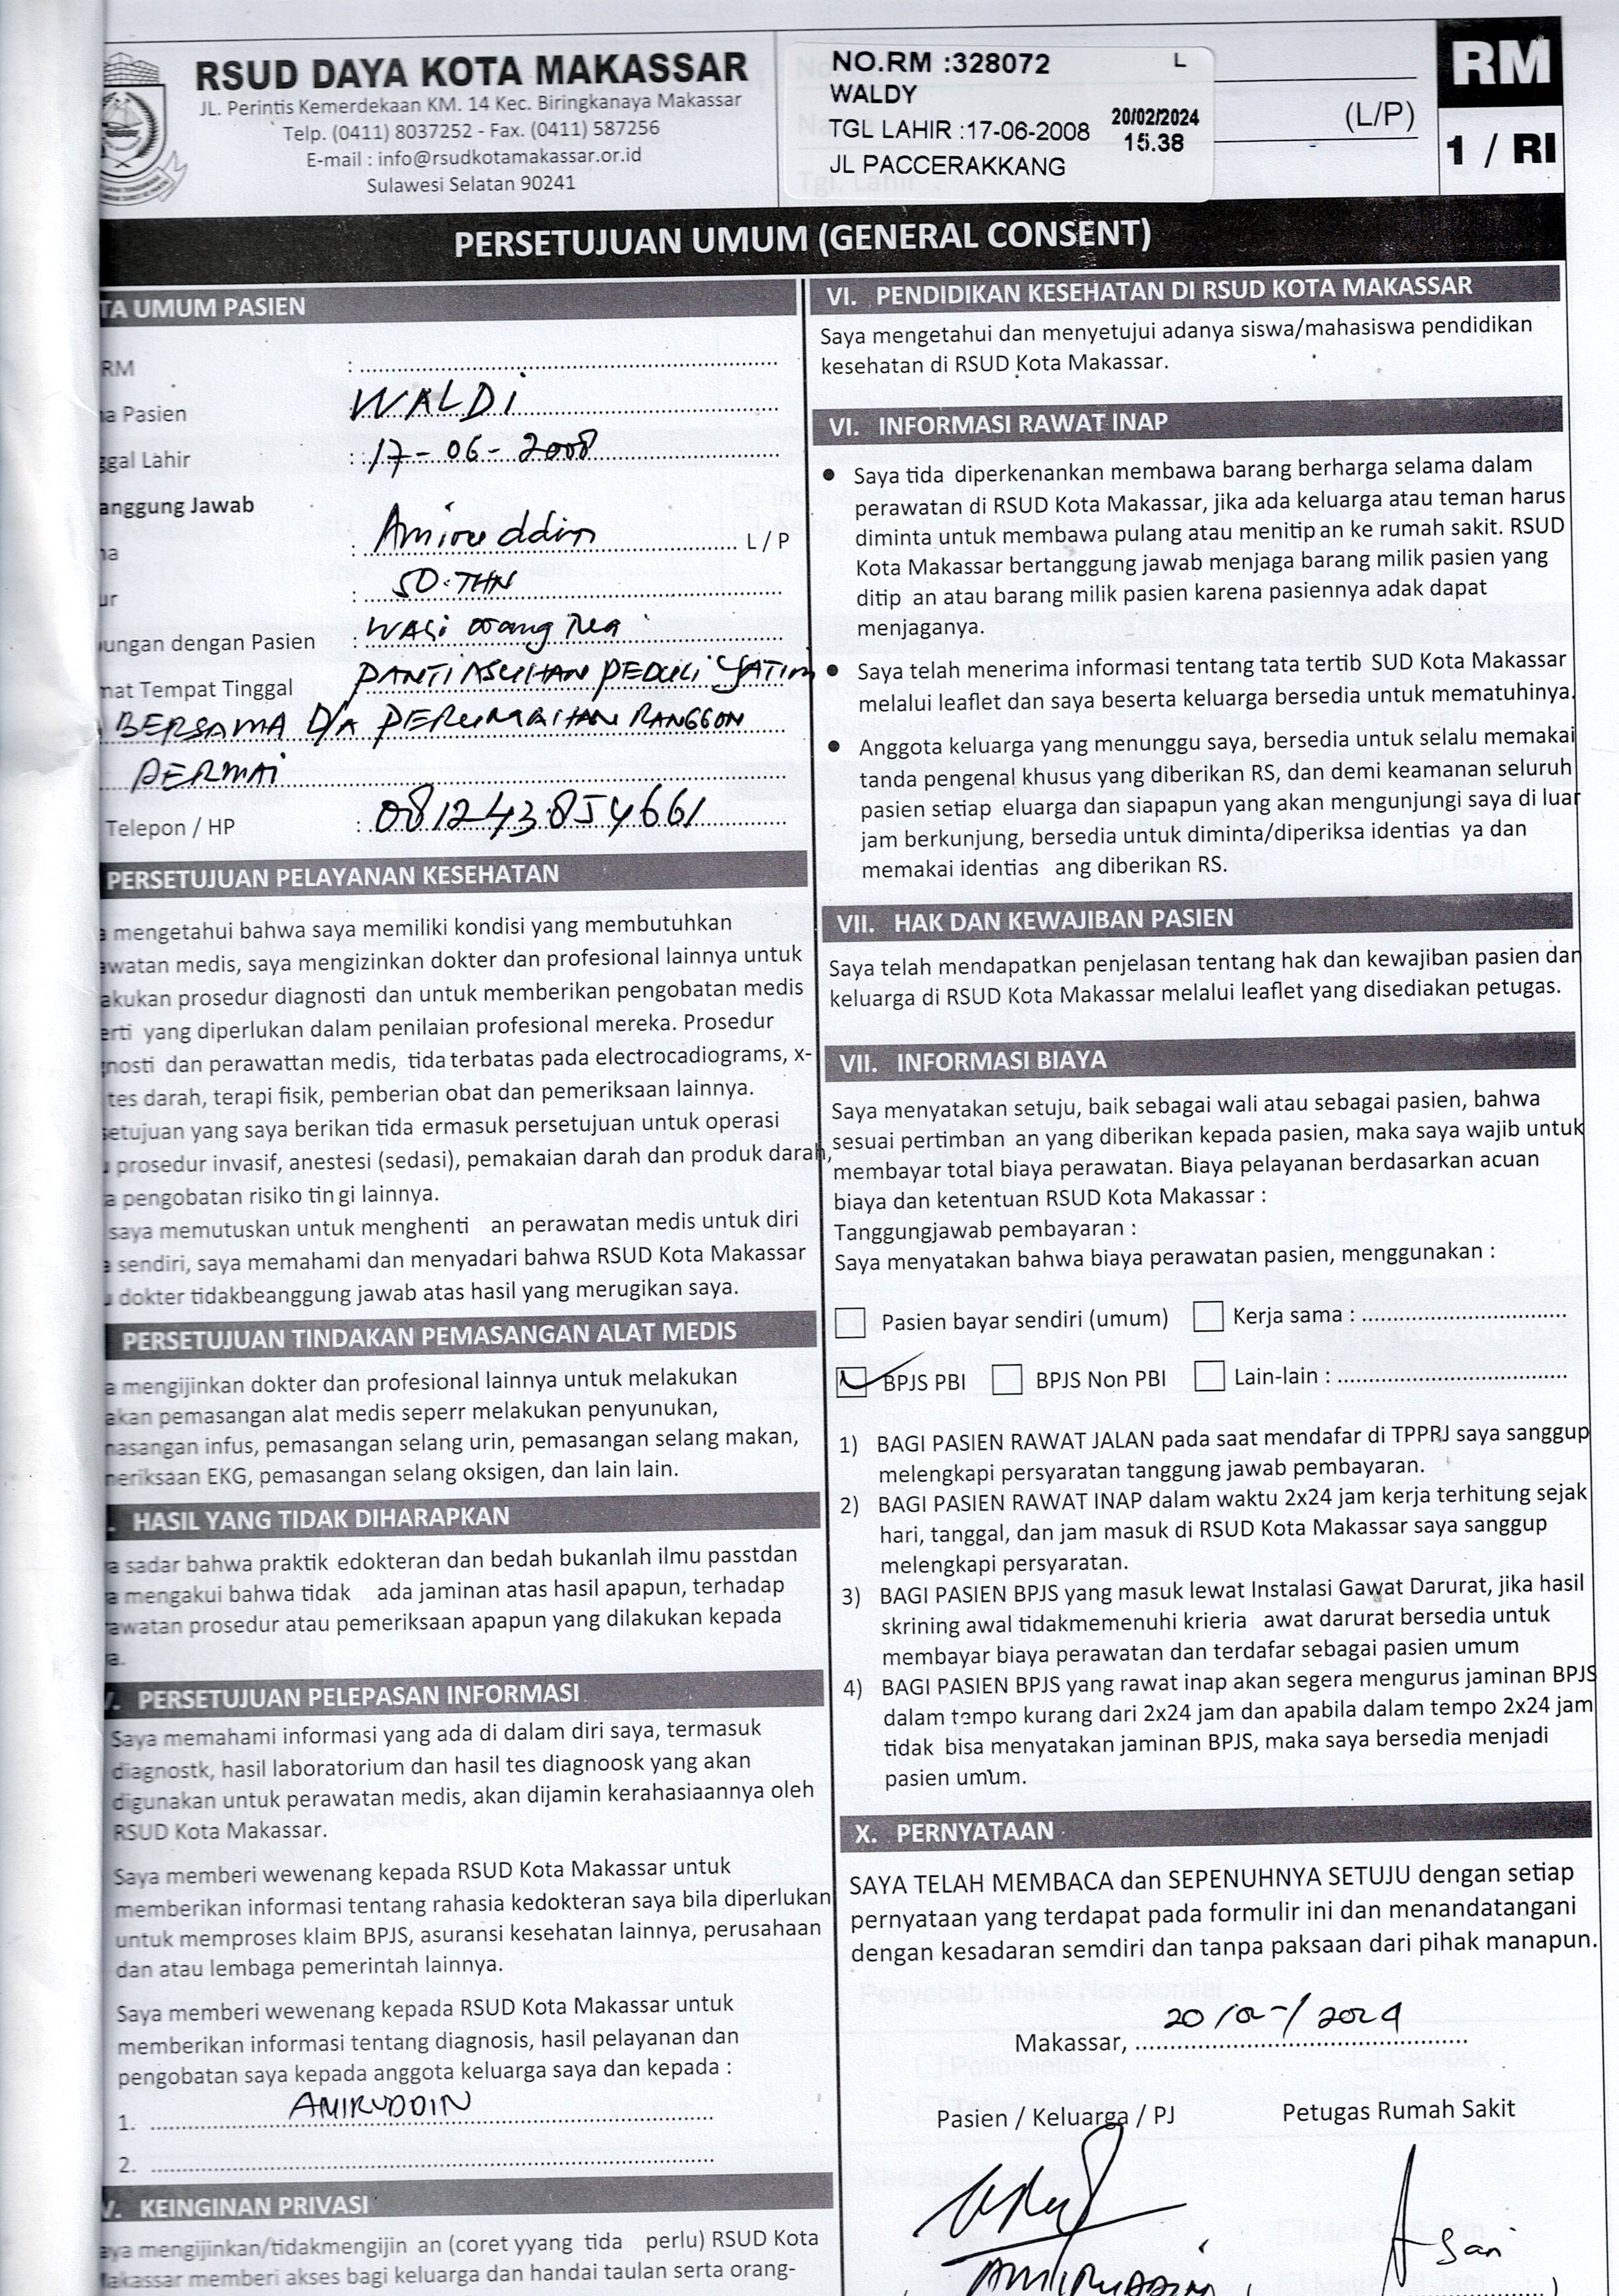 RSUD DAYA KOTA MAKASSAR
JL. Perintis Kemerdekaan KM. 14 Kec. Biringkanaya Makassar
Telp. (0411) 8037252 - Fax. (0411) 587256
E-mail : info@rsudkotamakassar.or.id
Sulawesi Selatan 90241
NO.RM :328072 L
WALDY
TGL LAHIR :17-06-2008 20/02/2024
15.38
JL PACCERAKKANG
(L/P)
RM
1 / RI
PERSETUJUAN UMUM (GENERAL CONSENT)
TA UMUM PASIEN
RM :
a Pasien WALDI
ggal Lahir : 17-06-2008
anggung Jawab
na : Amiruddin L / P
ur : 50 THN
ungan dengan Pasien : WALI orang Tua
mat Tempat Tinggal PANTI ASUHAN PEDULI YATIM
BERSAMA D/A PERUMAHAN RANGGON
PERMAI
Telepon / HP : 081243854661
PERSETUJUAN PELAYANAN KESEHATAN
a mengetahui bahwa saya memiliki kondisi yang membutuhkan
awatan medis, saya mengizinkan dokter dan profesional lainnya untuk
akukan prosedur diagnosti dan untuk memberikan pengobatan medis
erti yang diperlukan dalam penilaian profesional mereka. Prosedur
gnosti dan perawattan medis, tida terbatas pada electrocadiograms, x-
tes darah, terapi fisik, pemberian obat dan pemeriksaan lainnya.
setujuan yang saya berikan tida ermasuk persetujuan untuk operasi
u prosedur invasif, anestesi (sedasi), pemakaian darah dan produk darah,
a pengobatan risiko tin gi lainnya.
saya memutuskan untuk menghenti an perawatan medis untuk diri
a sendiri, saya memahami dan menyadari bahwa RSUD Kota Makassar
u dokter tidakbeanggung jawab atas hasil yang merugikan saya.
PERSETUJUAN TINDAKAN PEMASANGAN ALAT MEDIS
a mengijinkan dokter dan profesional lainnya untuk melakukan
akan pemasangan alat medis seperr melakukan penyunukan,
nasangan infus, pemasangan selang urin, pemasangan selang makan,
neriksaan EKG, pemasangan selang oksigen, dan lain lain.
. HASIL YANG TIDAK DIHARAPKAN
a sadar bahwa praktik edokteran dan bedah bukanlah ilmu passtdan
a mengakui bahwa tidak ada jaminan atas hasil apapun, terhadap
awatan prosedur atau pemeriksaan apapun yang dilakukan kepada
a.
. PERSETUJUAN PELEPASAN INFORMASI
Saya memahami informasi yang ada di dalam diri saya, termasuk
diagnostk, hasil laboratorium dan hasil tes diagnoosk yang akan
digunakan untuk perawatan medis, akan dijamin kerahasiaannya oleh
RSUD Kota Makassar.
Saya memberi wewenang kepada RSUD Kota Makassar untuk
memberikan informasi tentang rahasia kedokteran saya bila diperlukan
untuk memproses klaim BPJS, asuransi kesehatan lainnya, perusahaan
dan atau lembaga pemerintah lainnya.
Saya memberi wewenang kepada RSUD Kota Makassar untuk
memberikan informasi tentang diagnosis, hasil pelayanan dan
pengobatan saya kepada anggota keluarga saya dan kepada :
1. AMIRUDDIN
2.
V. KEINGINAN PRIVASI
aya mengijinkan/tidakmengijin an (coret yyang tida perlu) RSUD Kota
Makassar memberi akses bagi keluarga dan handai taulan serta orang-
VI. PENDIDIKAN KESEHATAN DI RSUD KOTA MAKASSAR
Saya mengetahui dan menyetujui adanya siswa/mahasiswa pendidikan
kesehatan di RSUD Kota Makassar.
VI. INFORMASI RAWAT INAP
● Saya tida diperkenankan membawa barang berharga selama dalam
perawatan di RSUD Kota Makassar, jika ada keluarga atau teman harus
diminta untuk membawa pulang atau menitip an ke rumah sakit. RSUD
Kota Makassar bertanggung jawab menjaga barang milik pasien yang
ditip an atau barang milik pasien karena pasiennya adak dapat
menjaganya.
● Saya telah menerima informasi tentang tata tertib SUD Kota Makassar
melalui leaflet dan saya beserta keluarga bersedia untuk mematuhinya.
● Anggota keluarga yang menunggu saya, bersedia untuk selalu memakai
tanda pengenal khusus yang diberikan RS, dan demi keamanan seluruh
pasien setiap eluarga dan siapapun yang akan mengunjungi saya di luar
jam berkunjung, bersedia untuk diminta/diperiksa identias ya dan
memakai identias ang diberikan RS.
VII. HAK DAN KEWAJIBAN PASIEN
Saya telah mendapatkan penjelasan tentang hak dan kewajiban pasien dan
keluarga di RSUD Kota Makassar melalui leaflet yang disediakan petugas.
VII. INFORMASI BIAYA
Saya menyatakan setuju, baik sebagai wali atau sebagai pasien, bahwa
sesuai pertimban an yang diberikan kepada pasien, maka saya wajib untuk
membayar total biaya perawatan. Biaya pelayanan berdasarkan acuan
biaya dan ketentuan RSUD Kota Makassar :
Tanggungjawab pembayaran :
Saya menyatakan bahwa biaya perawatan pasien, menggunakan :
Pasien bayar sendiri (umum) Kerja sama :
BPJS PBI BPJS Non PBI Lain-lain :
1) BAGI PASIEN RAWAT JALAN pada saat mendafar di TPPRJ saya sanggup
melengkapi persyaratan tanggung jawab pembayaran.
2) BAGI PASIEN RAWAT INAP dalam waktu 2x24 jam kerja terhitung sejak
hari, tanggal, dan jam masuk di RSUD Kota Makassar saya sanggup
melengkapi persyaratan.
3) BAGI PASIEN BPJS yang masuk lewat Instalasi Gawat Darurat, jika hasil
skrining awal tidakmemenuhi krieria awat darurat bersedia untuk
membayar biaya perawatan dan terdafar sebagai pasien umum
4) BAGI PASIEN BPJS yang rawat inap akan segera mengurus jaminan BPJS
dalam tempo kurang dari 2x24 jam dan apabila dalam tempo 2x24 jam
tidak bisa menyatakan jaminan BPJS, maka saya bersedia menjadi
pasien umum.
X. PERNYATAAN
SAYA TELAH MEMBACA dan SEPENUHNYA SETUJU dengan setiap
pernyataan yang terdapat pada formulir ini dan menandatangani
dengan kesadaran semdiri dan tanpa paksaan dari pihak manapun.
Makassar, 20/02/2024
Pasien / Keluarga / PJ Petugas Rumah Sakit
AMIRUDDIN
Sari